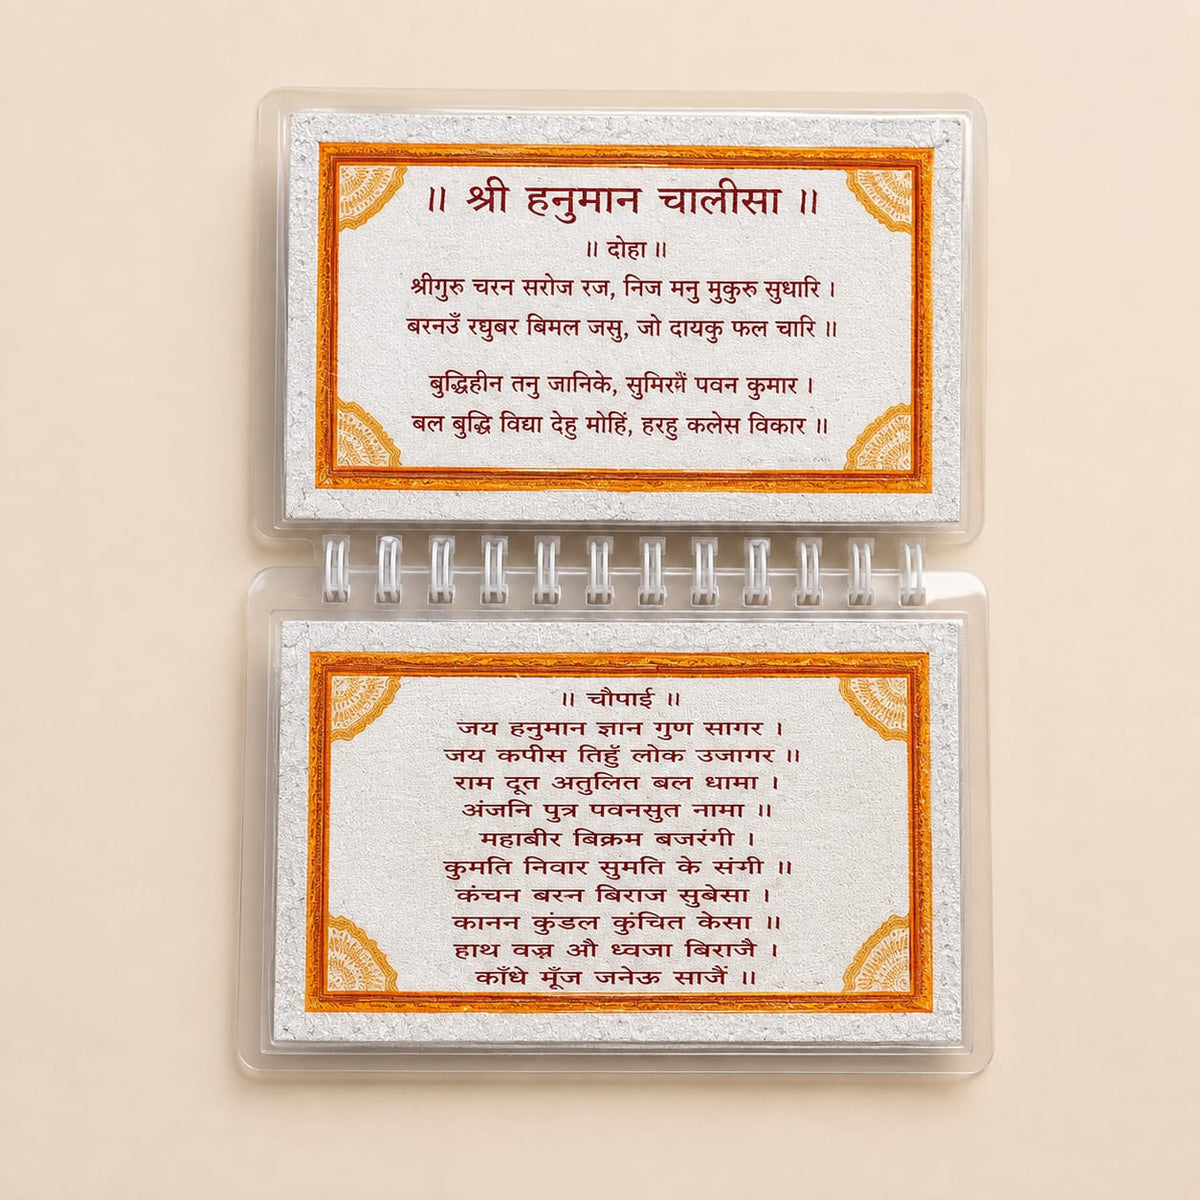 ॥ श्री हनुमान चालीसा ॥
॥ दोहा ॥
श्रीगुरु चरन सरोज रज, निज मनु मुकुरु सुधारि ।
बरनउँ रघुबर बिमल जसु, जो दायकु फल चारि ॥
बुद्धिहीन तनु जानिके, पवन कुमार ।
बल बुद्धि विद्या देहु मोहिं, हरहु कलेस विकार ॥
॥ चौपाई ॥
जय हनुमान ज्ञान गुण सागर ।
जय कपीस तिहुँ लोक उजागर ॥
राम दूत अतुलित बल धामा ।
अंजनि पुत्र पवनसुत नामा ॥
महाबीर बिक्रम बजरंगी ।
कुमति निवार सुमति के संगी ॥
कंचन बरन बिराज सुबेसा ।
कानन कुंडल कुंचित केसा ॥
हाथ औ ध्वजा बिराजै ।
काँधे मूँज जनेऊ साजैं ॥